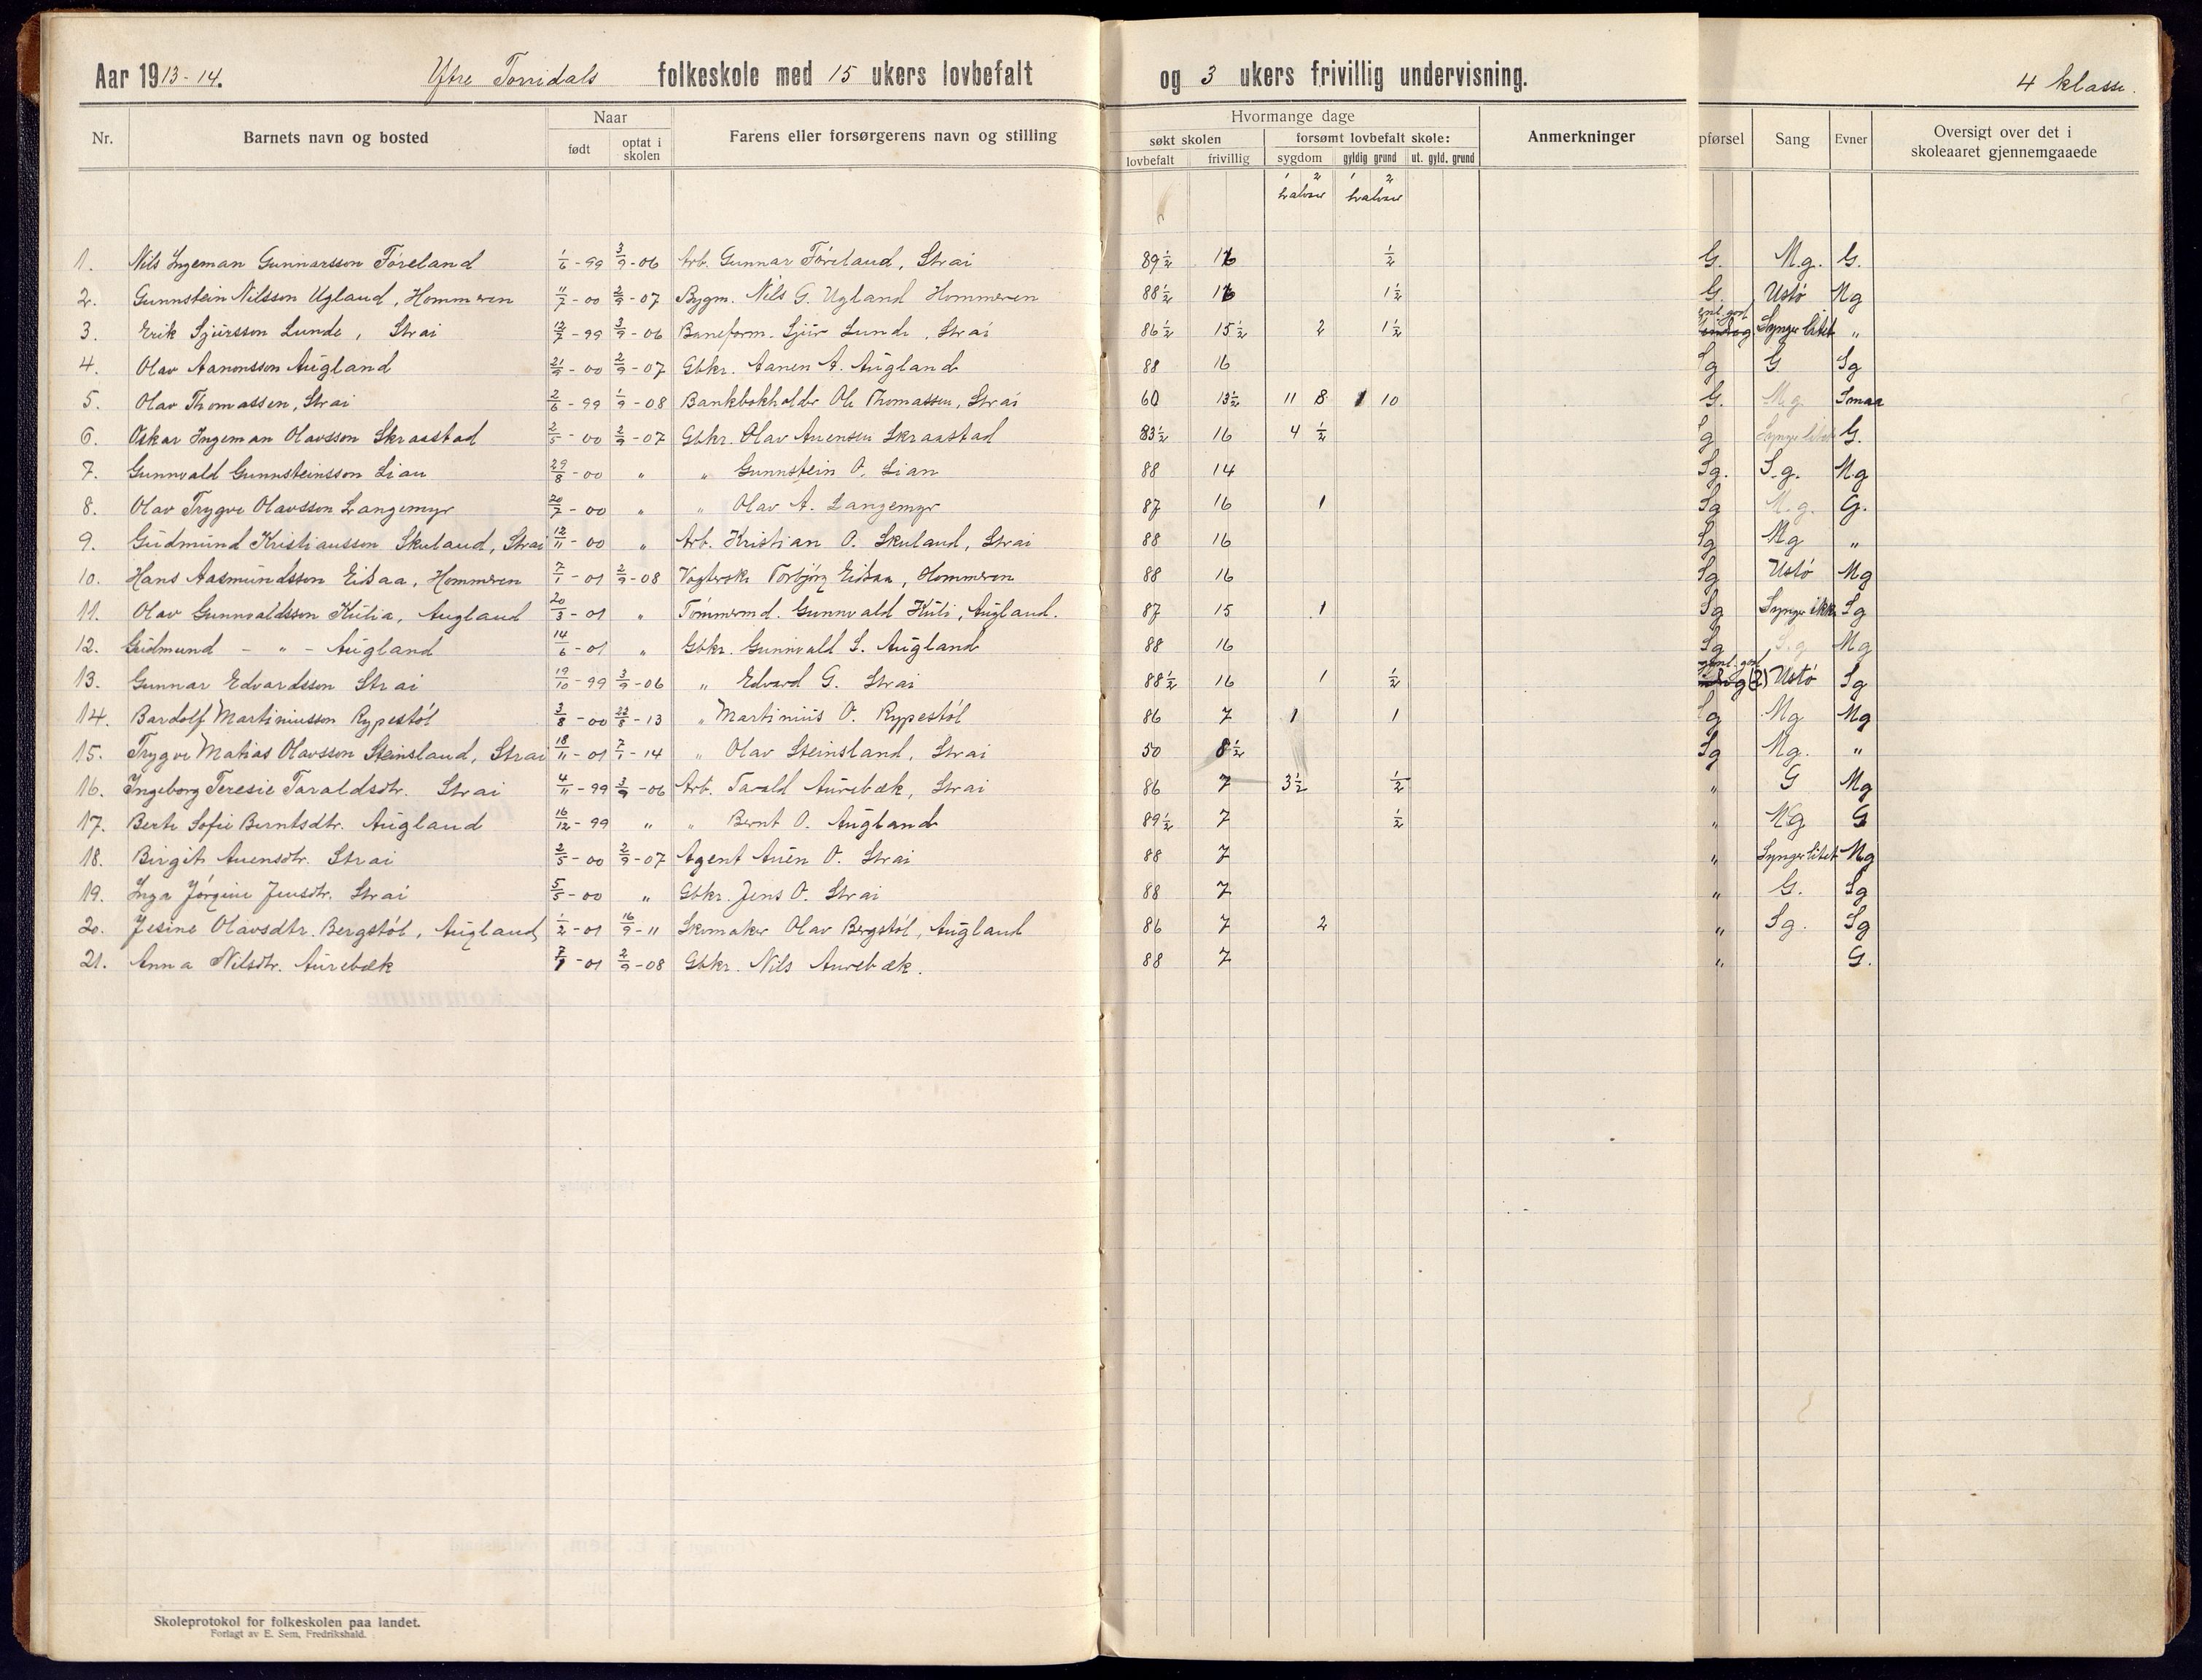 Aar 1913-14. Ytre Torridals folkeskole med 15 ukers lovbefalt og 3 ukers frivillig undervisning. 4 klasse.
Nr. Barnets navn og bosted Naar Farens eller forsørgerens navn og stilling Hvormange dage Anmerkninger pførsel Sang Evner Oversigt over det i skoleaaret gjennemgaaede
født optat i skolen søkt skolen forsømt lovbefalt skole:
lovbefalt frivillig sygdom gyldig grund ut. gyld. grund
1 2 1 2
halvaar halvaar
1. Nils Ingeman Gunnarsson Føreland 1/6-99 3/9-06 Arb. Gunnar Føreland, Strai 89½ 16 ½ G. M.g. G.
2. Gunnstein Nilsson Ugland, Hommeren 11/7-00 2/9-07 Bygm. Nils G. Ugland Hommeren 88½ 16 1½ G. Ustø Mg
3. Erik Sjursson Lunde, Strai 12/7-99 3/9-06 Baneform. Sjur Lunde, Strai 86½ 15½ 2 1½ Synger litet "
4. Olav Aanonsson Augland 21/9-00 2/9-07 Gbkr. Aanen A. Augland 88 16 Sg G Sg
5. Olav Thomassen, Strai 2/6-99 1/9-08 Bankbokholder Ole Thomassen, Strai 60 13½ 11 8 1 10 G. Mg. Smaa
6. Oskar Ingeman Olavsson Skraastad 2/5-00 2/9-07 Gbkr. Olav Auensen Skraastad 83½ 16 4 ½ g Synger litet G.
7. Gunnvald Gunnsteinsson Lian 29/8-00 " " Gunnstein O. Lian 88 14 Sg. S.g. M.g
8. Olav Trygve Olavsson Langemyr 20/7-00 " " Olav A. Langemyr 87 16 1 Sg M.g. G.
9. Gudmund Kristiansson Skuland, Strai 12/11-00 " Arb. Kristian O. Skuland, Strai 88 16 Sg Mg "
10. Hans Aasmundsson Eidsaa, Hommeren 7/1-01 2/9-08 Torbjørg Eidsaa, Hommeren 88 16 Sg Ustø Mg
11. Olav Gunnvaldsson Kulia, Augland 20/3-01 " Tømmermd. Gunnvald Kuli, Augland. 87 15 1 Sg Synger ikke Sg
12. Gudmund - " - Augland 14/6-01 " Gbkr. Gunnvald S. Augland 88 16 Sg S.g Mg
13. Gunnar Edvardsson Strai 19/10-99 3/9-06 " Edvard G. Strai 88½ 16 1 ½ (2) Ustø Sg
14. Bardolf Martiniusson Rypestøl 3/8-00 22/8-13 " Martinius O. Rypestøl 86 7 1 1 g Mg Mg
15. Trygve Matias Olavsson Steinsland, Strai 18/11-01 7/1-14 " Olav Steinsland, Strai 50 8½ Sg Mg. "
16. Ingeborg Teresie Taraldsdtr. Strai 4/11-99 3/9-06 Arb. Tarald Aurebæk, Strai 86 7 3½ ½ " G Mg
17. Berte Sofie Berntsdtr. Augland 16/12-99 " " Bernt O. Augland 89½ 7 ½ " Mg G
18. Birgit Auensdtr. Strai 2/5-00 2/9-07 Agent Auen O. Strai 88 7 " Synger litet Mg
19. Inga Jørgine Jensdtr. Strai 5/5-00 " Gbkr. Jens O. Strai 88 7 " G. Sg
20. Jesine Olavsdtr. Bergstøl, Augland 1/2-01 16/9-11 Skomaker Olav Bergstøl, Augland 86 7 2 " Sg. Sg
21. Anna Nilsdtr. Aurebæk 7/1-01 2/9-08 Gbkr. Nils Aurebæk. 88 7 " G.
Skoleprotokol for folkeskolen paa landet.
Forlagt av E. Sem, Fredrikshald.